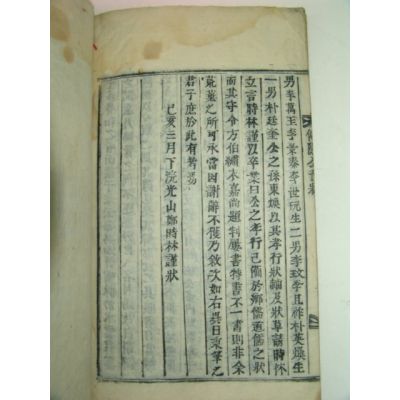 男李萬玉李業泰李世玩生二男李玟李且祚朴英煥生
一男朴廷奎公之孫東煥以其孝行狀軸及狀草請時林
立言時林謹以卒業曰公之孝行已備於鄉儒道儒之狀
而其守令方伯繡衣嘉尚題制屢書特書不一書則非余
荒蕪之所可承當固謝辭不獲乃敘次如右異日秉筆之
君子庶於此有考
己亥三月下浣光山鄭時林謹狀